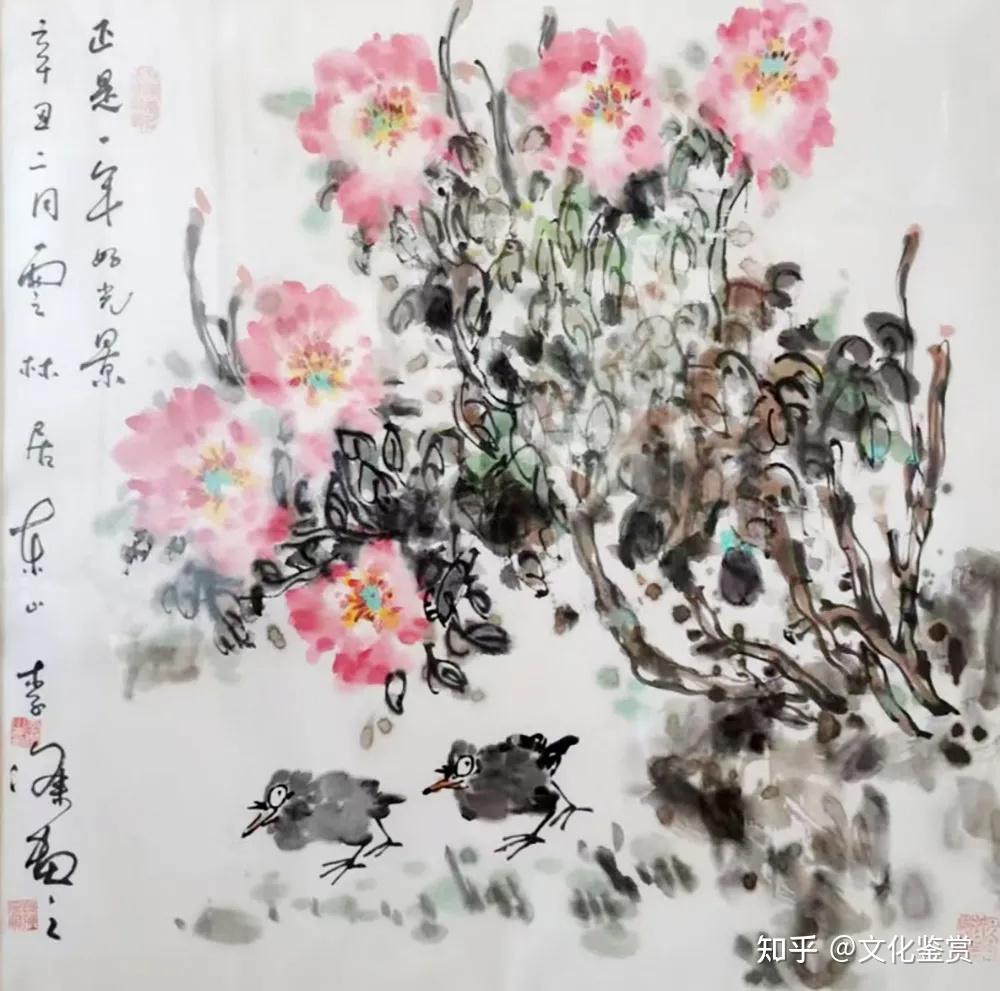 正是一年好光景
辛丑二月雲林居東山李濂画之
知乎 @文化鉴赏